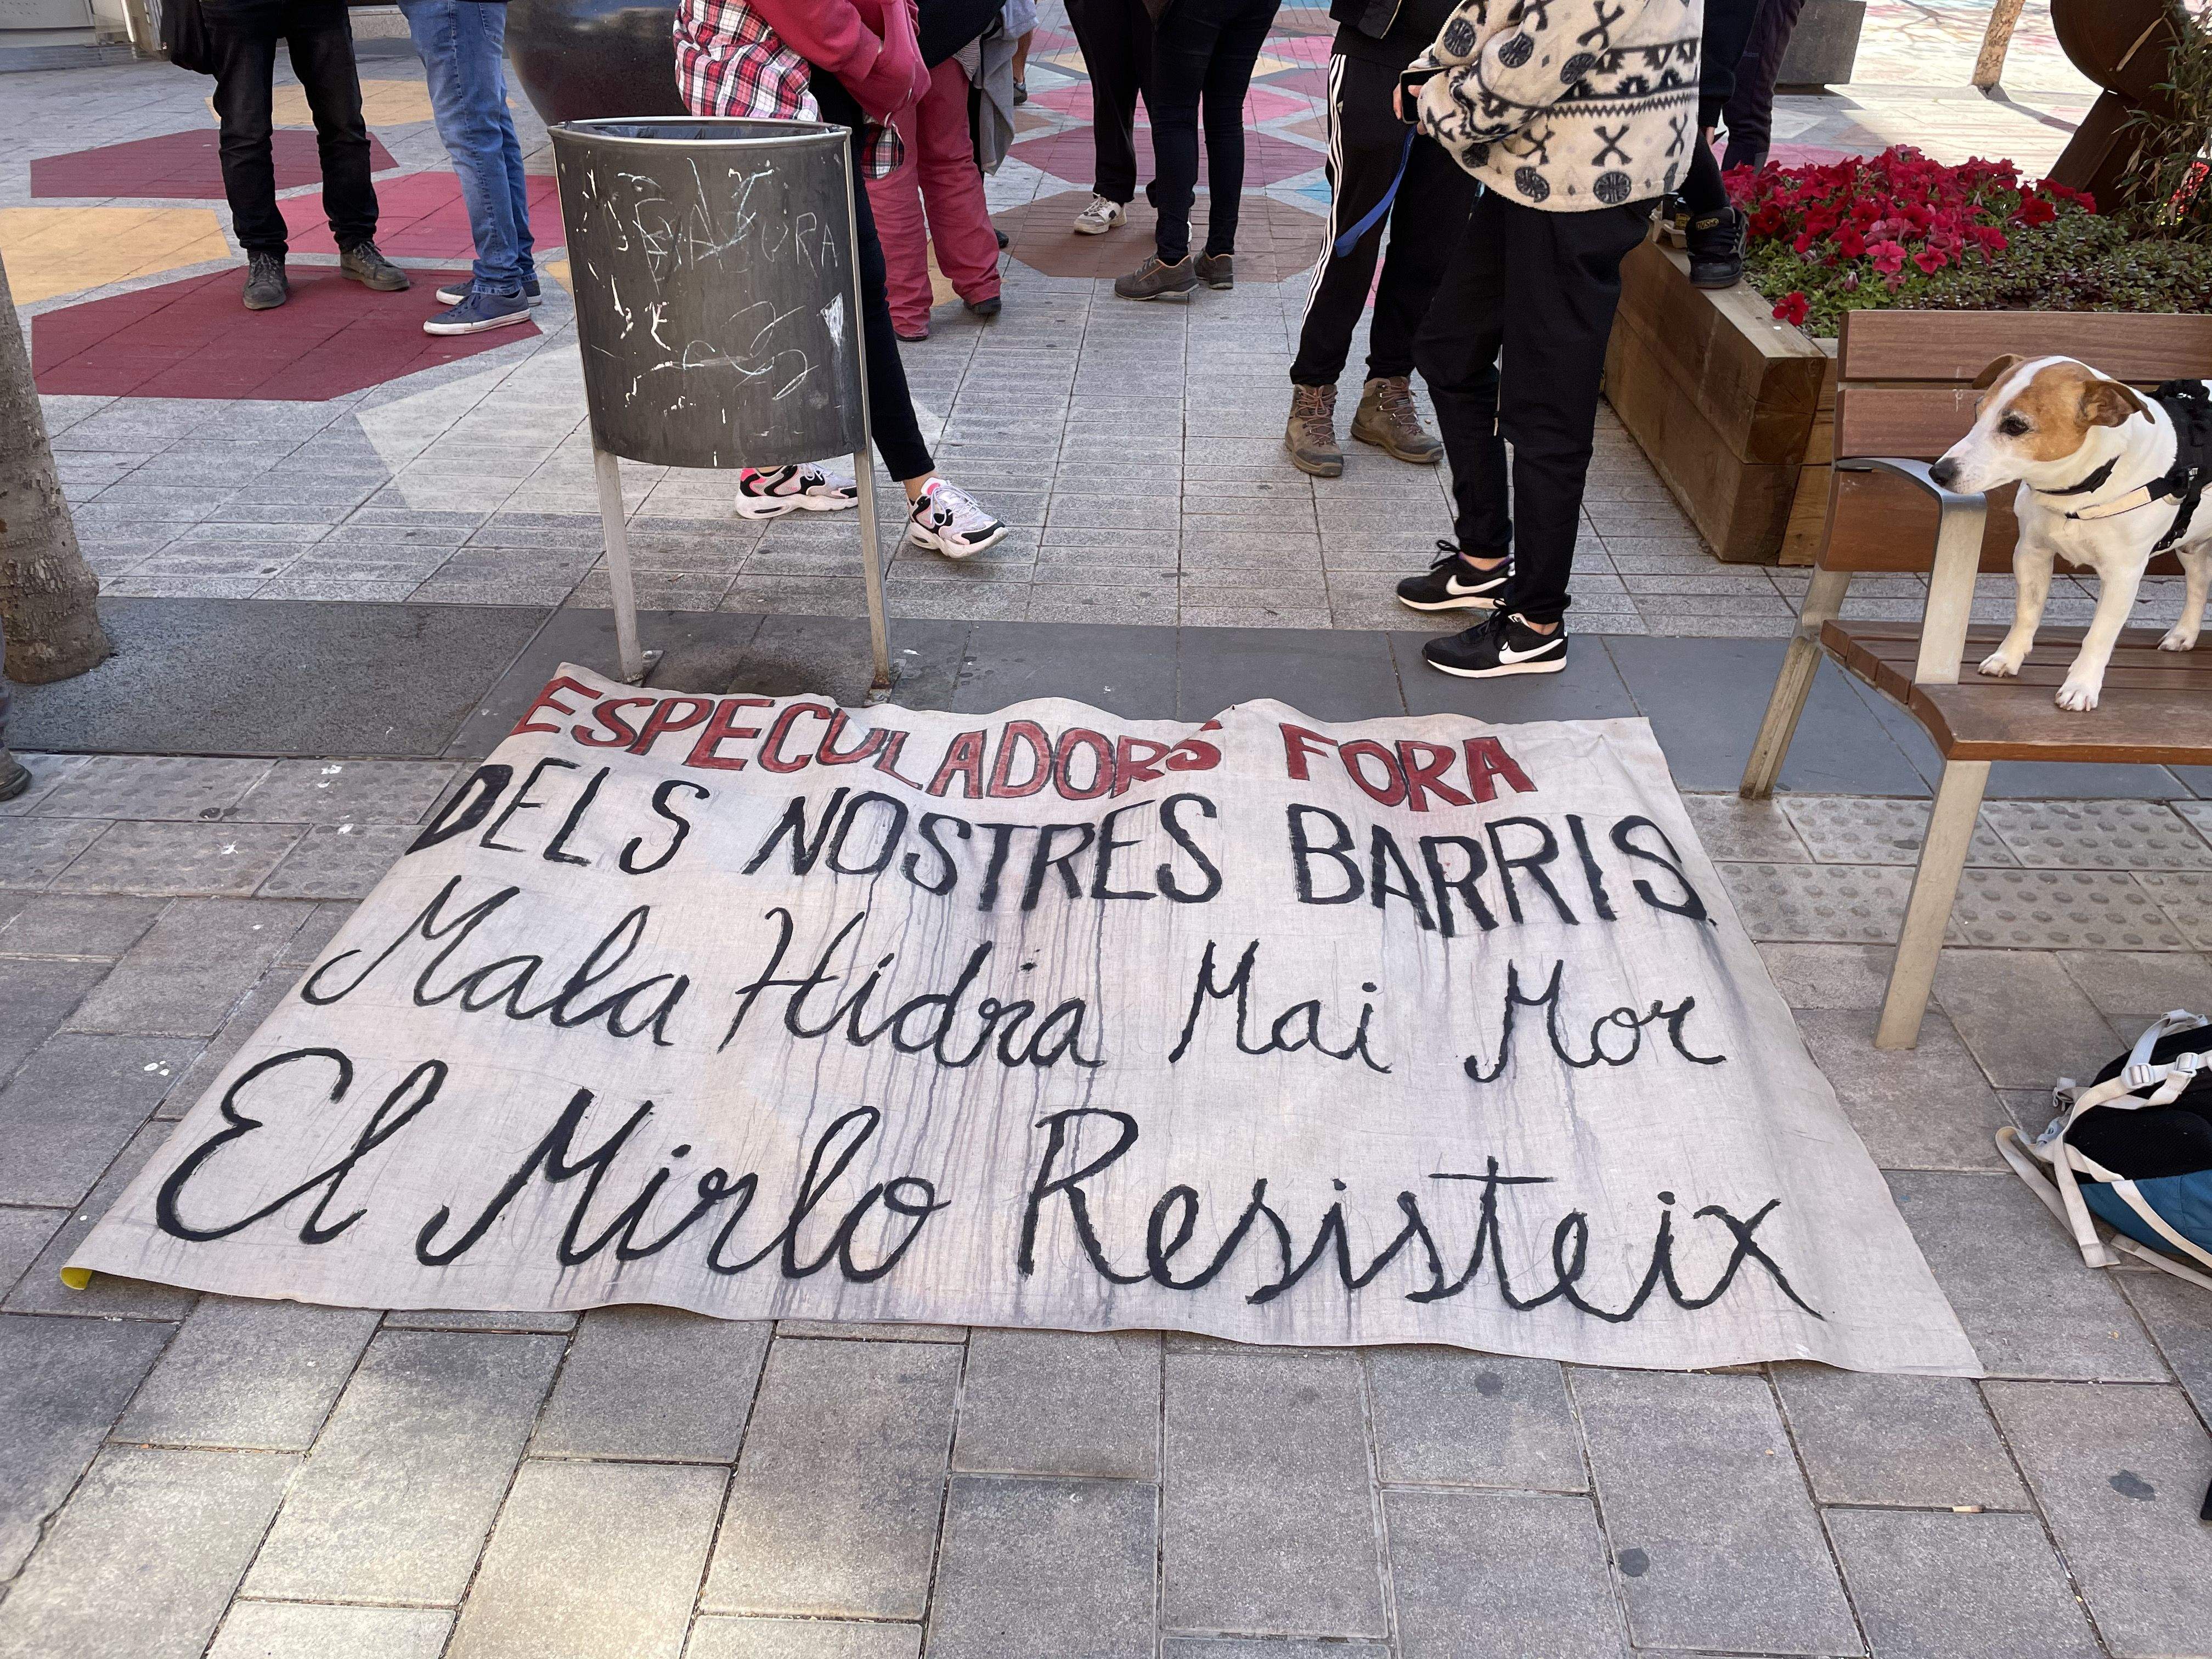 ESPECULADORS FORA
DELS NOSTRES BARRIS.
Mala Hidra Mai Mor
El Mirlo Resisteix